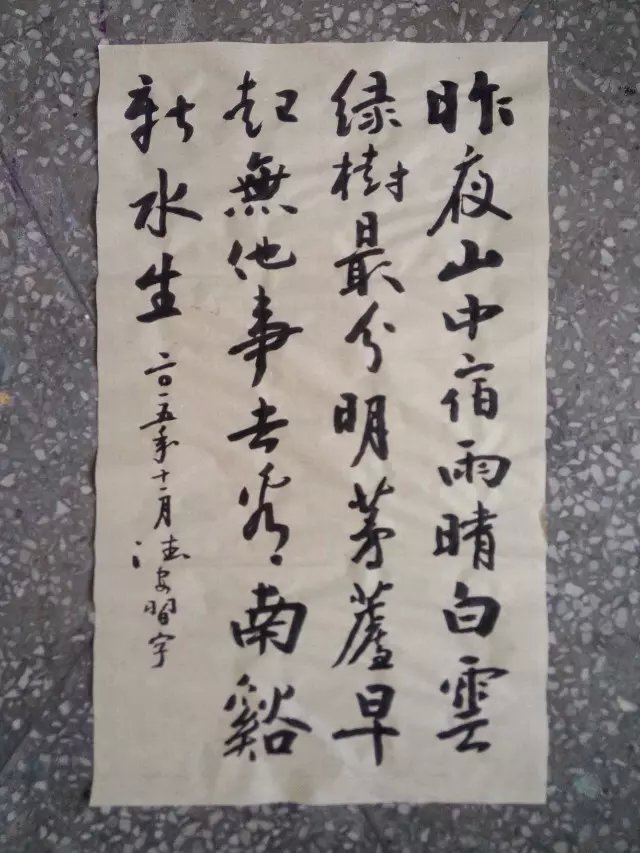 昨夜山中宿雨晴白雲
绿樹最分明茅蘆早
起無他事去看南谿
新水生
二〇一五年十一月 習字